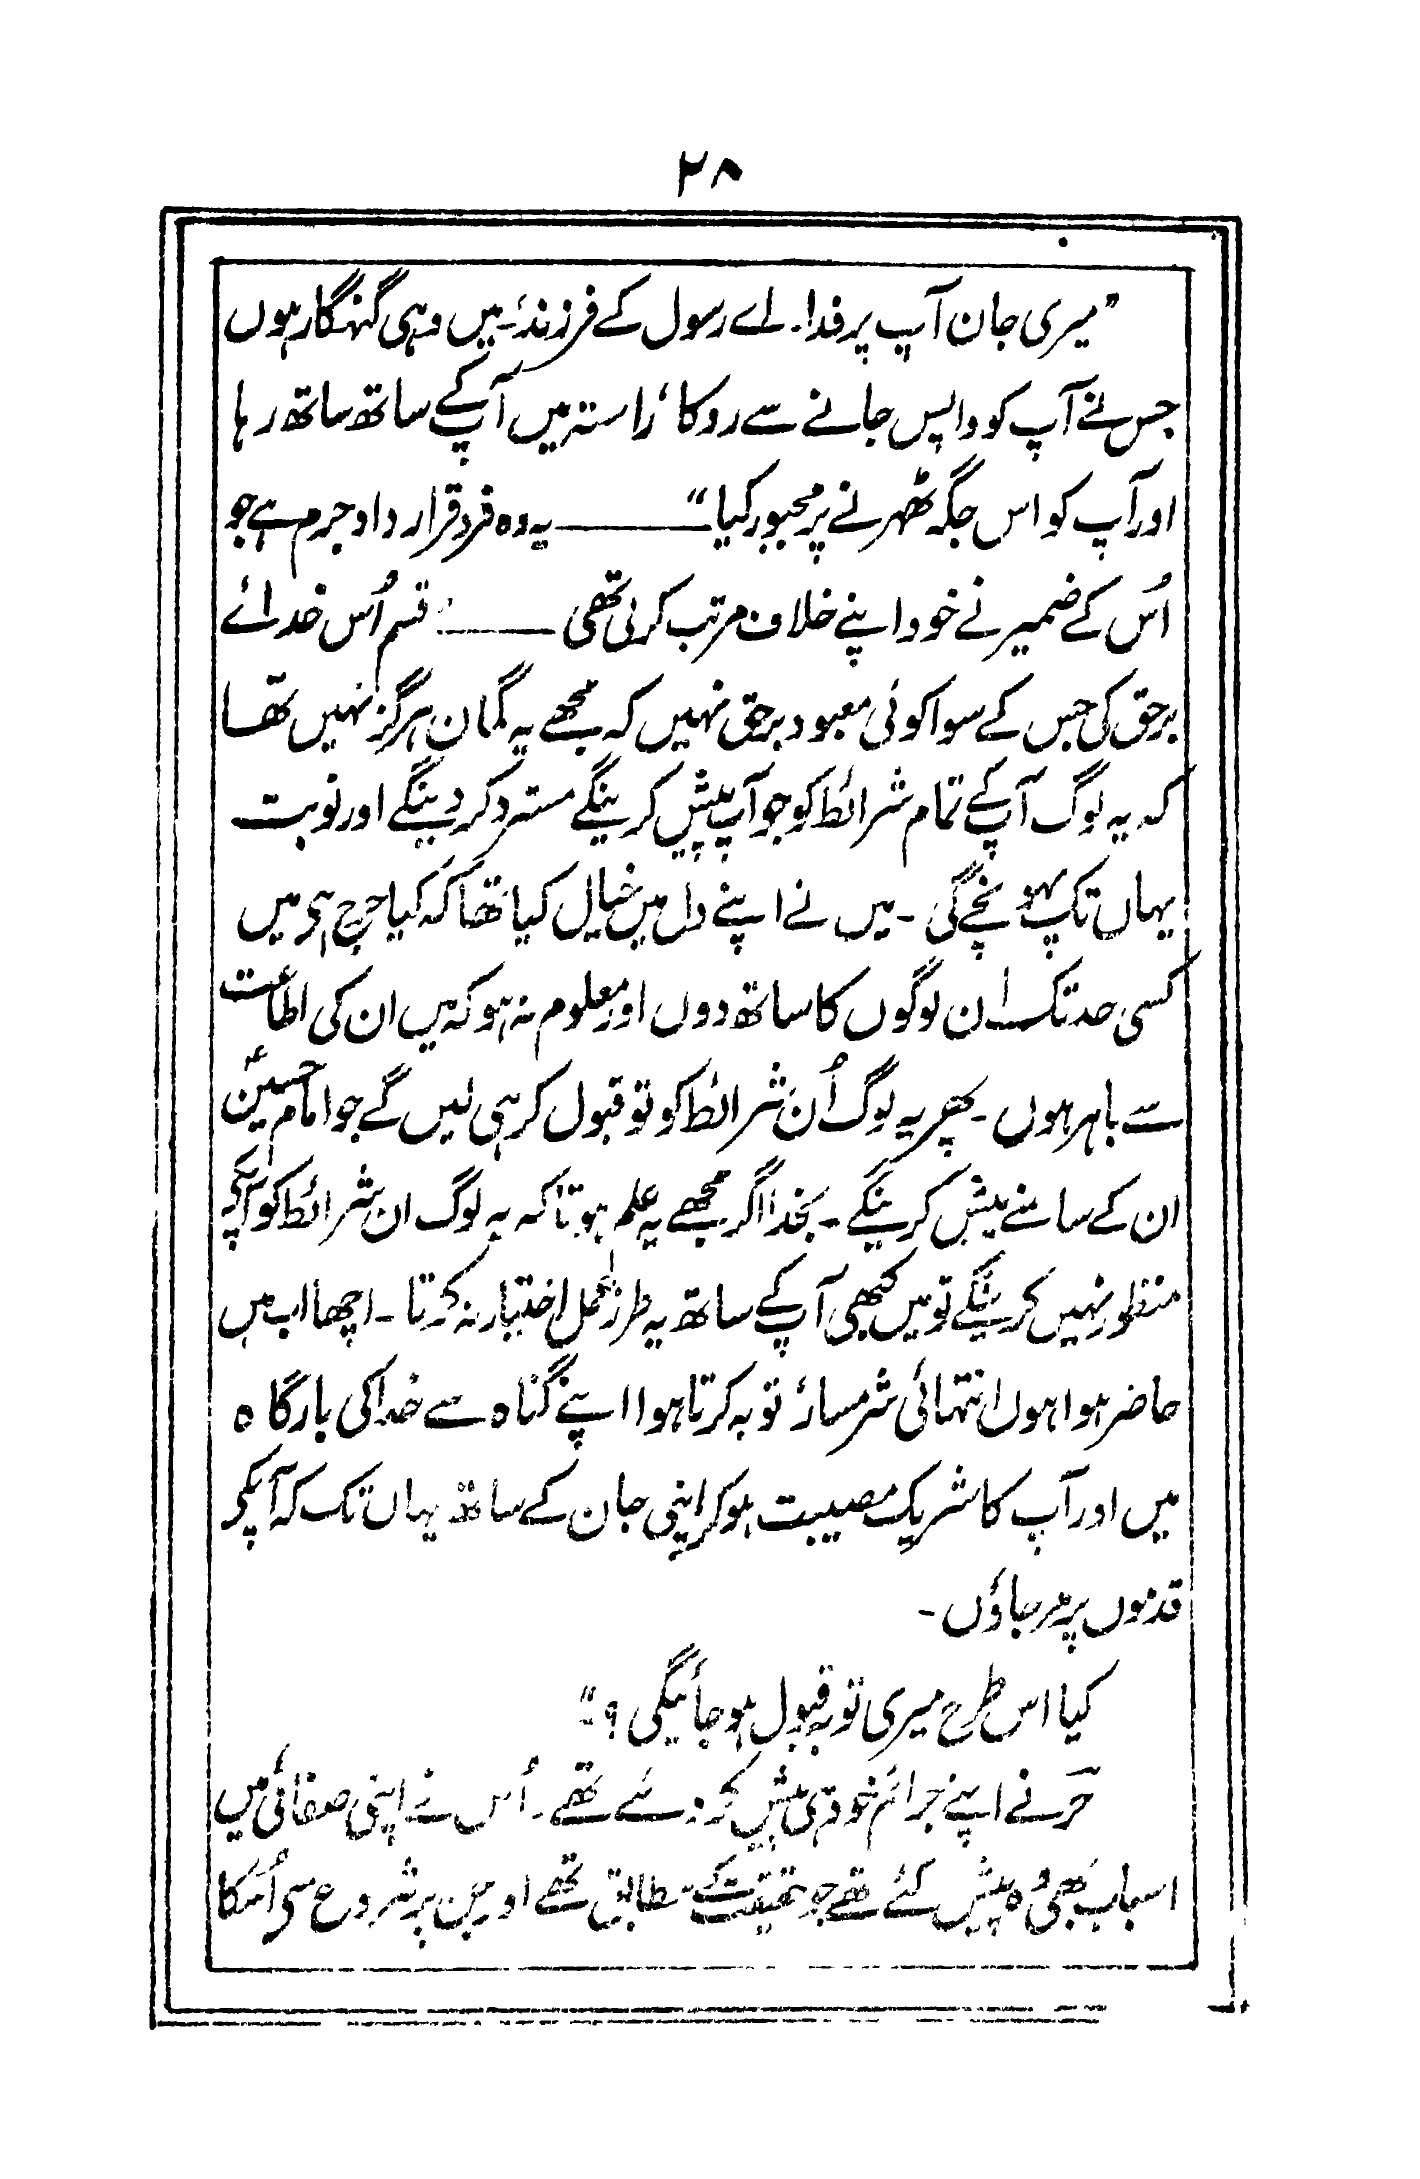 ۲۸
”میری جان آپ پر فدا۔ اے رسول کے فرزند۔ میں وہی گنہگار ہوں
جس نے آپ کو واپس جانے سے روکا، راستہ میں آپکے ساتھ ساتھ رہا
اور آپ کو اس جگہ ٹھہرنے پر مجبور کیا“ ——— یہ وہ فرد قرار داد جرم ہے جو
اُس کے ضمیر نے خود اپنے خلاف مرتب کرلی تھی ——— ”قسم اُس خدائے
برحق کی جس کے سوا کوئی معبود برحق نہیں کہ مجھے یہ گمان ہرگز نہیں تھا
کہ یہ لوگ آپکے تمام شرائط کو جو آپ پیش کرینگے مسترد کردینگے اور نوبت
یہاں تک پہونچے گی۔ میں نے اپنے دل میں خیال کیا تھا کہ کیا حرج ہی میں
کسی حد تک اِن لوگوں کا ساتھ دوں اور معلوم نہ ہو کہ میں ان کی اطاعت
سے باہر ہوں۔ پھر یہ لوگ اُن شرائط کو تو قبول کر ہی لیں گے جو امام حسینؑ
ان کے سامنے پیش کرینگے۔ بخدا اگر مجھے یہ علم ہوتا کہ یہ لوگ ان شرائط کو آپکے
منظور نہیں کرینگے تو میں کبھی آپ کے ساتھ یہ طرز عمل اختیار نہ کرتا۔ اچھا اب میں
حاضر ہوا ہوں انتہائی شرمسار، توبہ کرتا ہوا اپنے گناہ سے خدا کی بارگاہ
میں اور آپ کا شریک مصیبت ہو کر اپنی جان کے ساتھ یہاں تک کہ آپکے
قدموں پر مرجاؤں۔
کیا اس طرح میری توبہ قبول ہوجائیگی؟“
حرؔ نے اپنے جرائم خود ہی پیش کردئے تھے۔ اُس نے اپنی صفائی میں
اسباب بھی وہ پیش کئے تھے جو حقیقت کے مطابق تھے اور جن پر شروع سی اُسکا